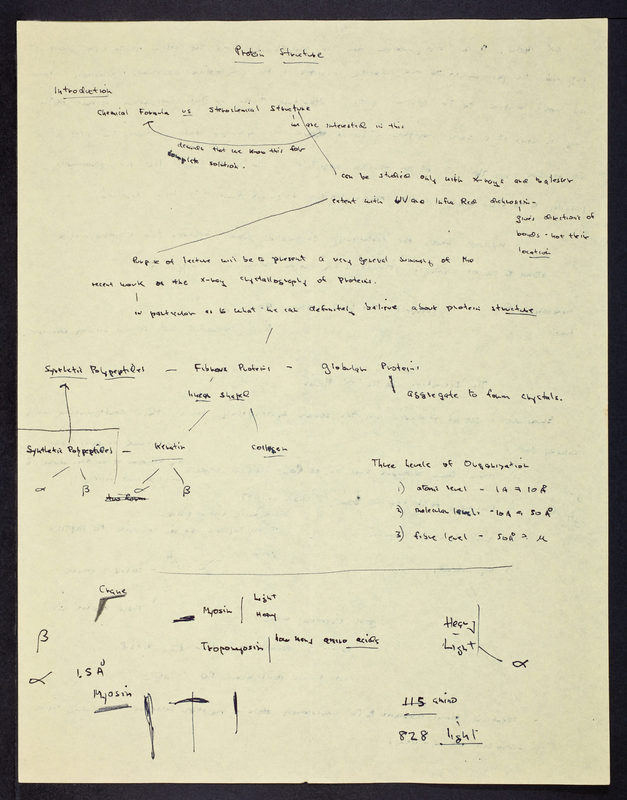 Protein Structure
Introduction
Chemical Formula vs Stereochemical Structure
we are interested in this
demands that we know this for
complete solution.
can be studied only with X-rays and to lesser
extent with UV and Infra Red dichroism -
gives directions of
bonds - not their
location
Purpose of lecture will be to present a very general summary of the
recent work on the X-ray crystallography of proteins.
in particular as to what we can definitely believe about protein structure
Synthetic Polypeptides - Fibrous Proteins - Globular Proteins
linear shaped
aggregate to form crystals.
Synthetic Polypeptides - Keratin
Collagen
α β α β
Three Levels of Organization
1) atomic level - 1 Å → 10 Å
2) molecular level - 10 Å → 50 Å
3) fibre level - 50 Å → μ
Crane
Myosin
Light
Heavy
Tropomyosin
how many amino acids
Heavy
Light
α
β
α
1.5 Å
Myosin
115 amino
828 light